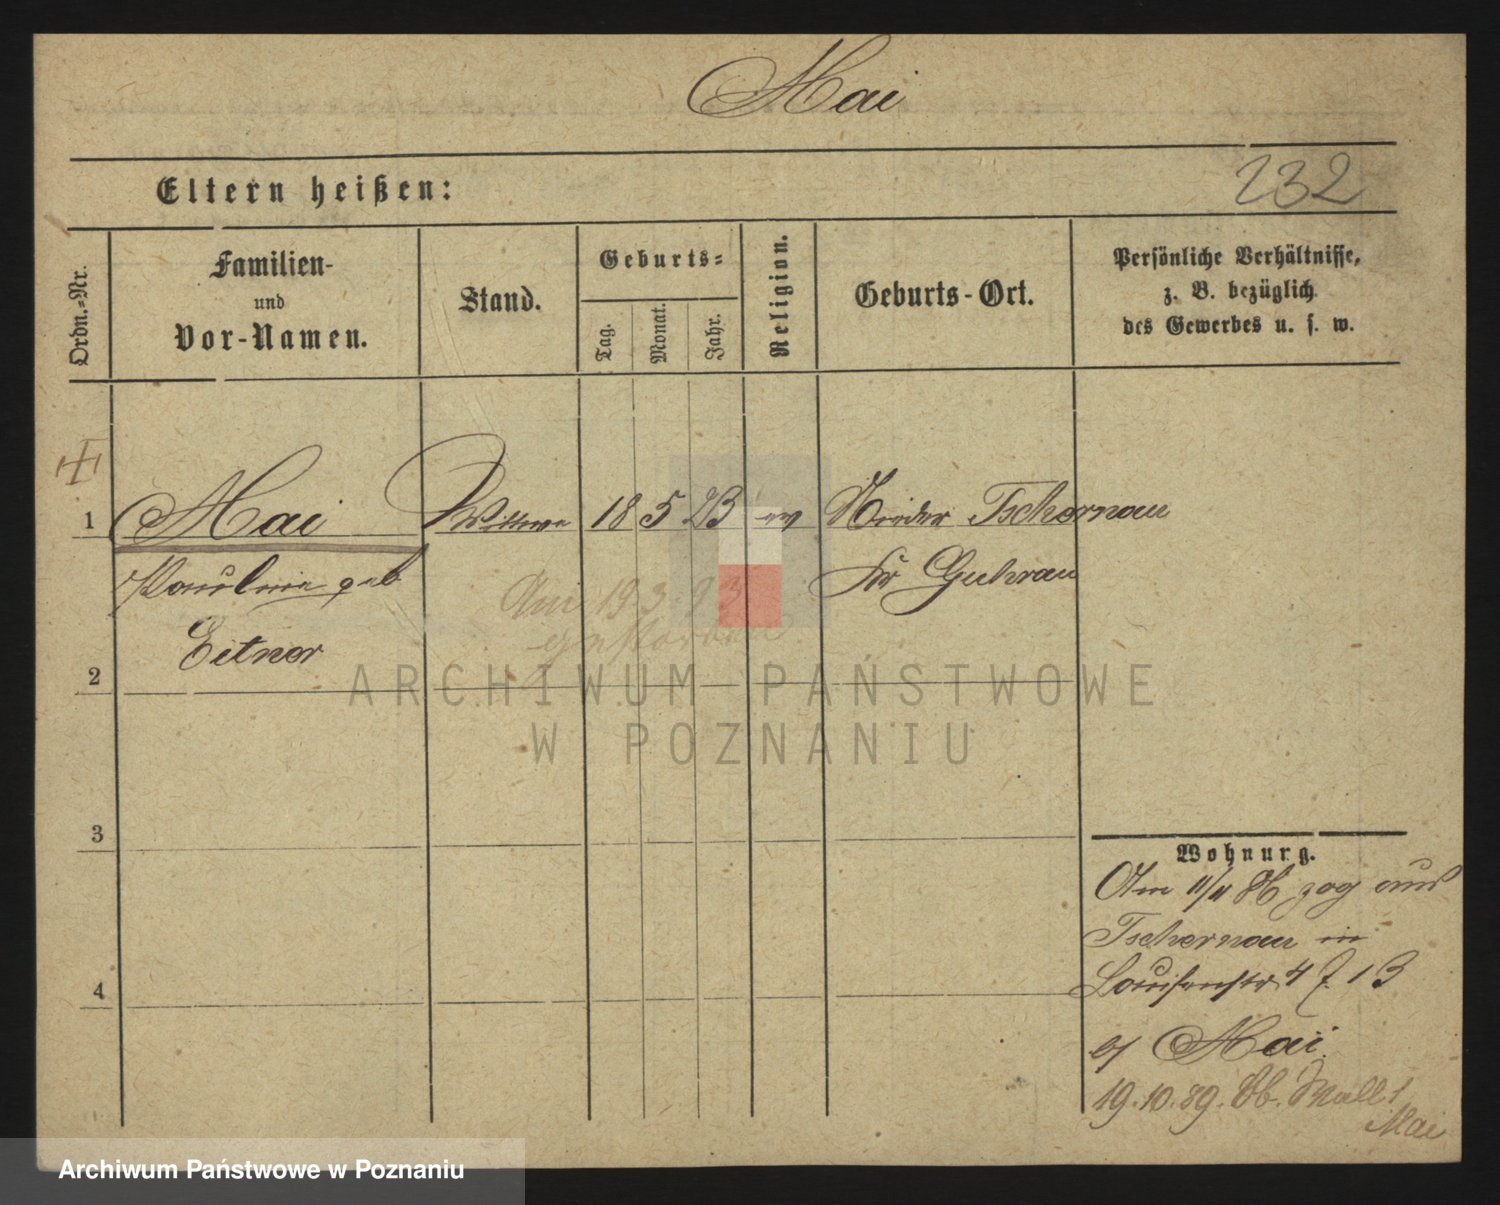 Mai
Eltern heißen:
232
Ordn.-Nr.
Familien-
und
Vor-Namen.
Stand.
Geburts-
Tag.
Monat.
Jahr.
Religion.
Geburts-Ort.
Persönliche Verhältnisse,
z. B. bezüglich
des Gewerbes u. s. w.
1 Mai Wittwe 18 5 23 ev Nieder Tschernau
Pauline geb Kr Guhrau
Eitner
Am 19 3 93
gestorben
2
3
4
Wohnung.
Am 11/11 86 zog aus
Tschernau in
Louisenstr 4 z 13
b/ Mai
19.10.89. Ob. Wall 1
Mai
ARCHIWUM PAŃSTWOWE
W POZNANIU
Archiwum Państwowe w Poznaniu